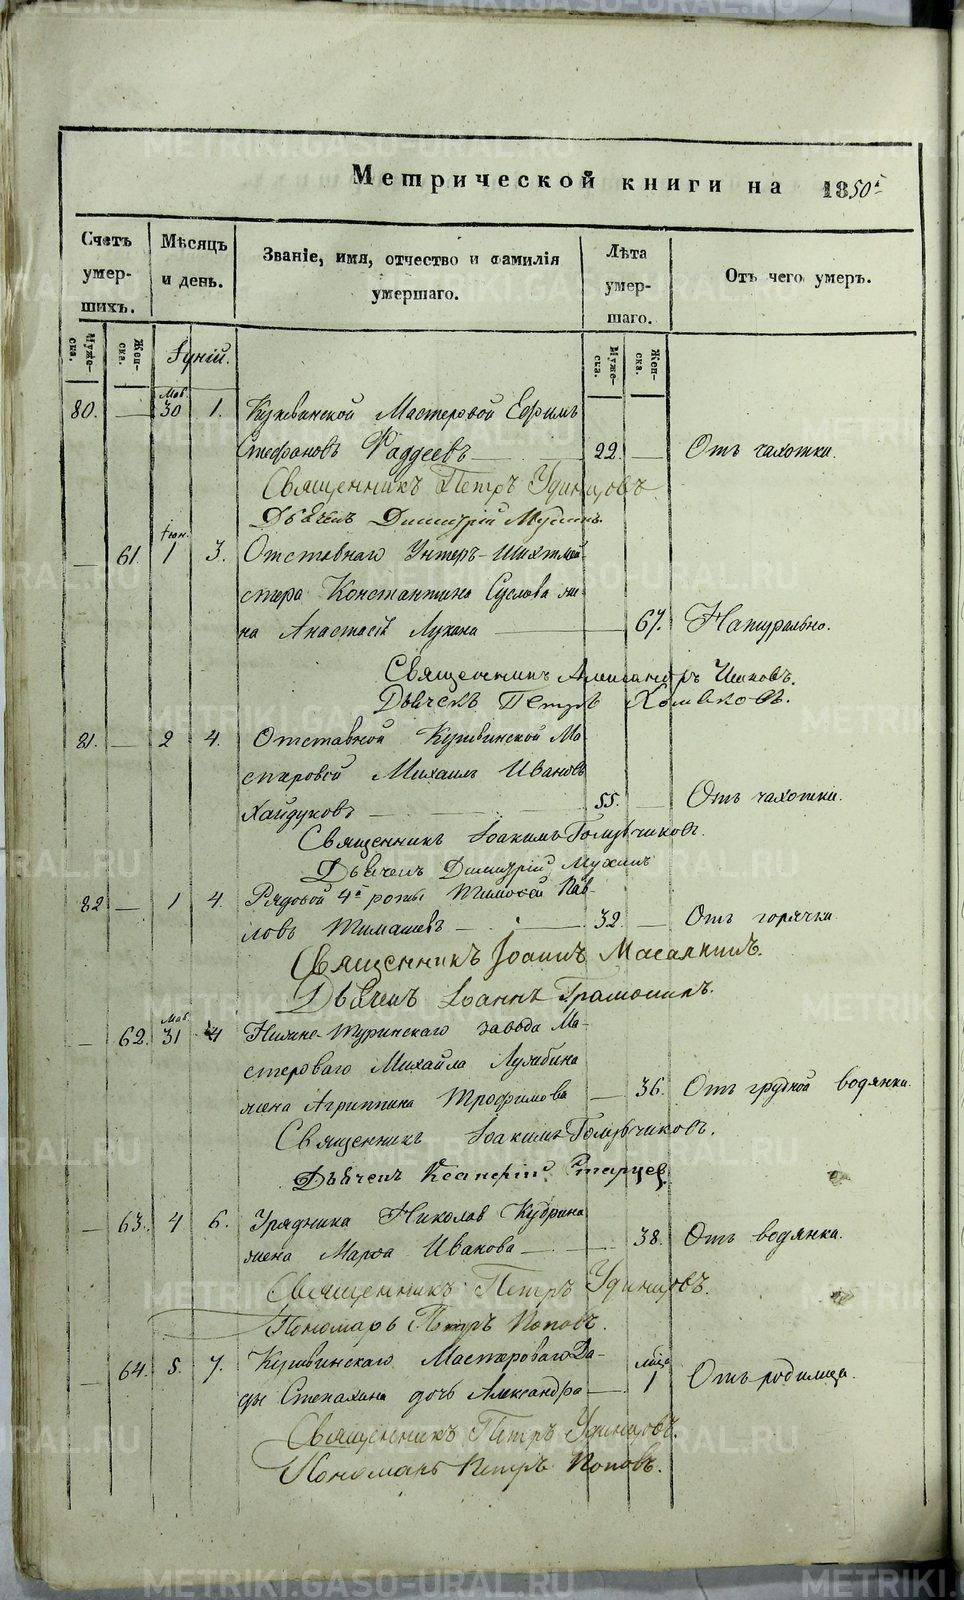 Метрической книги на 1850й
Счетъ умер- шихъ.
Мѣсяцъ и день.
Званіе, имя, отчество и фамилія умершаго.
Лѣта умер- шаго.
Отъ чего умеръ.
Муже- ска.
Жен- ска.
Іуній.
Муже- ска.
Жен- ска.
Маі.
80. — 30 1. Кушвинской Мастеровой Ефимъ
Стефановъ Фаддеевъ — 22. — Отъ чахотки.
Священникъ Петръ Удинцовъ
Дьячекъ Димитрій Мухинъ.
Іюн.
— 61. 1 3. Отставнаго Унтеръ-Шихтмей-
стера Константина Суслова же-
на Анастасія — 67. Натурально.
Священникъ Александръ
Дьячекъ Петръ Хомяковъ.
81. — 2 4. Отставной Кушвинской Ма-
стеровой Михаилъ Ивановъ
Хайдуковъ — 55. — Отъ чахотки.
Священникъ Іоакимъ Голубчиковъ.
Дьячекъ Димитрій Мухинъ
82 — 1 4. Рядовой 4й роты Тимофей Пав-
ловъ Тимашевъ — 32. — Отъ горячки
Священникъ Іоаннъ Масалкинъ.
Дьячекъ Іоаннъ Грамолинъ.
Маі
— 62. 31 4 Нижне-Туринскаго завода Ма-
стероваго Михайла Лумбина
жена Агриппина Трофимова — 36. Отъ грудной водянки.
Священникъ Іоакимъ Голубчиковъ.
Дьячекъ Старцев
— 63. 4 6. Урядника Николая Кубрина
жена Марѳа Иванова — 38. Отъ водянки.
Священникъ Петръ Удинцовъ.
Пономарь Петръ Поповъ.
— 64. 5. 7. Кушвинскаго Мастероваго
Степахина дочь Александра — мѣся 1 Отъ родимца.
Священникъ Петръ Удинцовъ.
Пономарь Петръ Поповъ.
METRIKI.GASO-URAL.RU